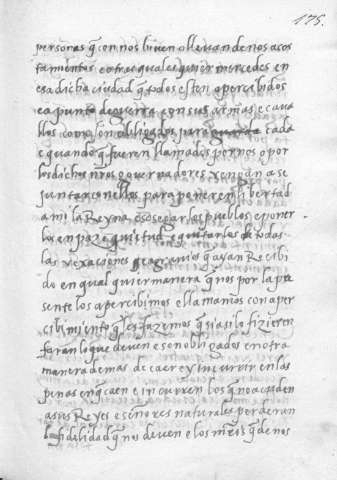 175.
personas q̃ con nos biven o llevan de nos acos
tamientos e otras qualesquier mercedes en
esa dicha ciudad q̃ todos esten apercibidos
e a punto de guerra con sus armas e cava
llos como son obligados para cada
e quando q̃ fueren llamados por nos o por
los dichos nr̃os governadores vengan a se
juntar con ellos para poner en libertad
a mi la Reyna e sosegar los pueblos e poner
los en paz e quietud e quitarlos de todas
las vexaciones e agravios q̃ ayan Recibi
do en qualquier manera q̃ nos por la pre
sente los apercibimos e llamamos con aper
cibimiento q̃ les fazemos q̃ si asi lo fizieren
faran lo que deven e son obligados en otra
manera demas de caer e yncurrir en las
penas en q̃ caen e incurren los q̃ no acuden
a sus Reyes e señores naturales perderan
la fidelidad q̃ nos deven e los mr̃s q̃ de nos